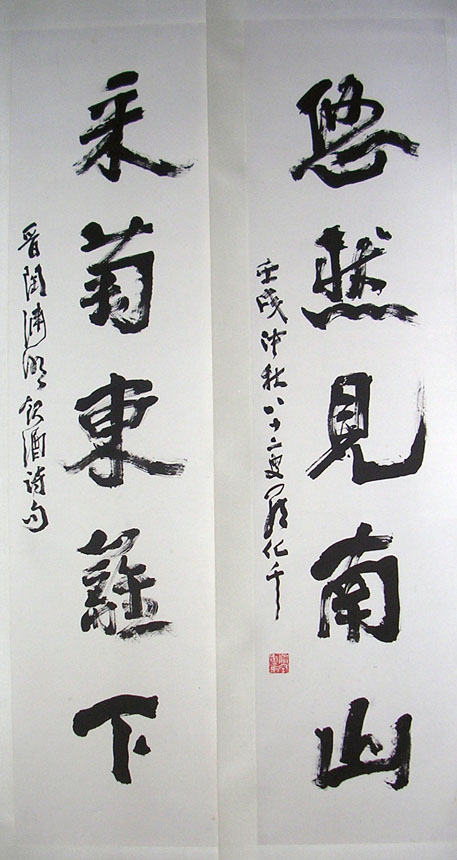 采菊東籬下
晉陶淵明飲酒詩句
悠然見南山
壬戌仲秋八十二叟羅化千